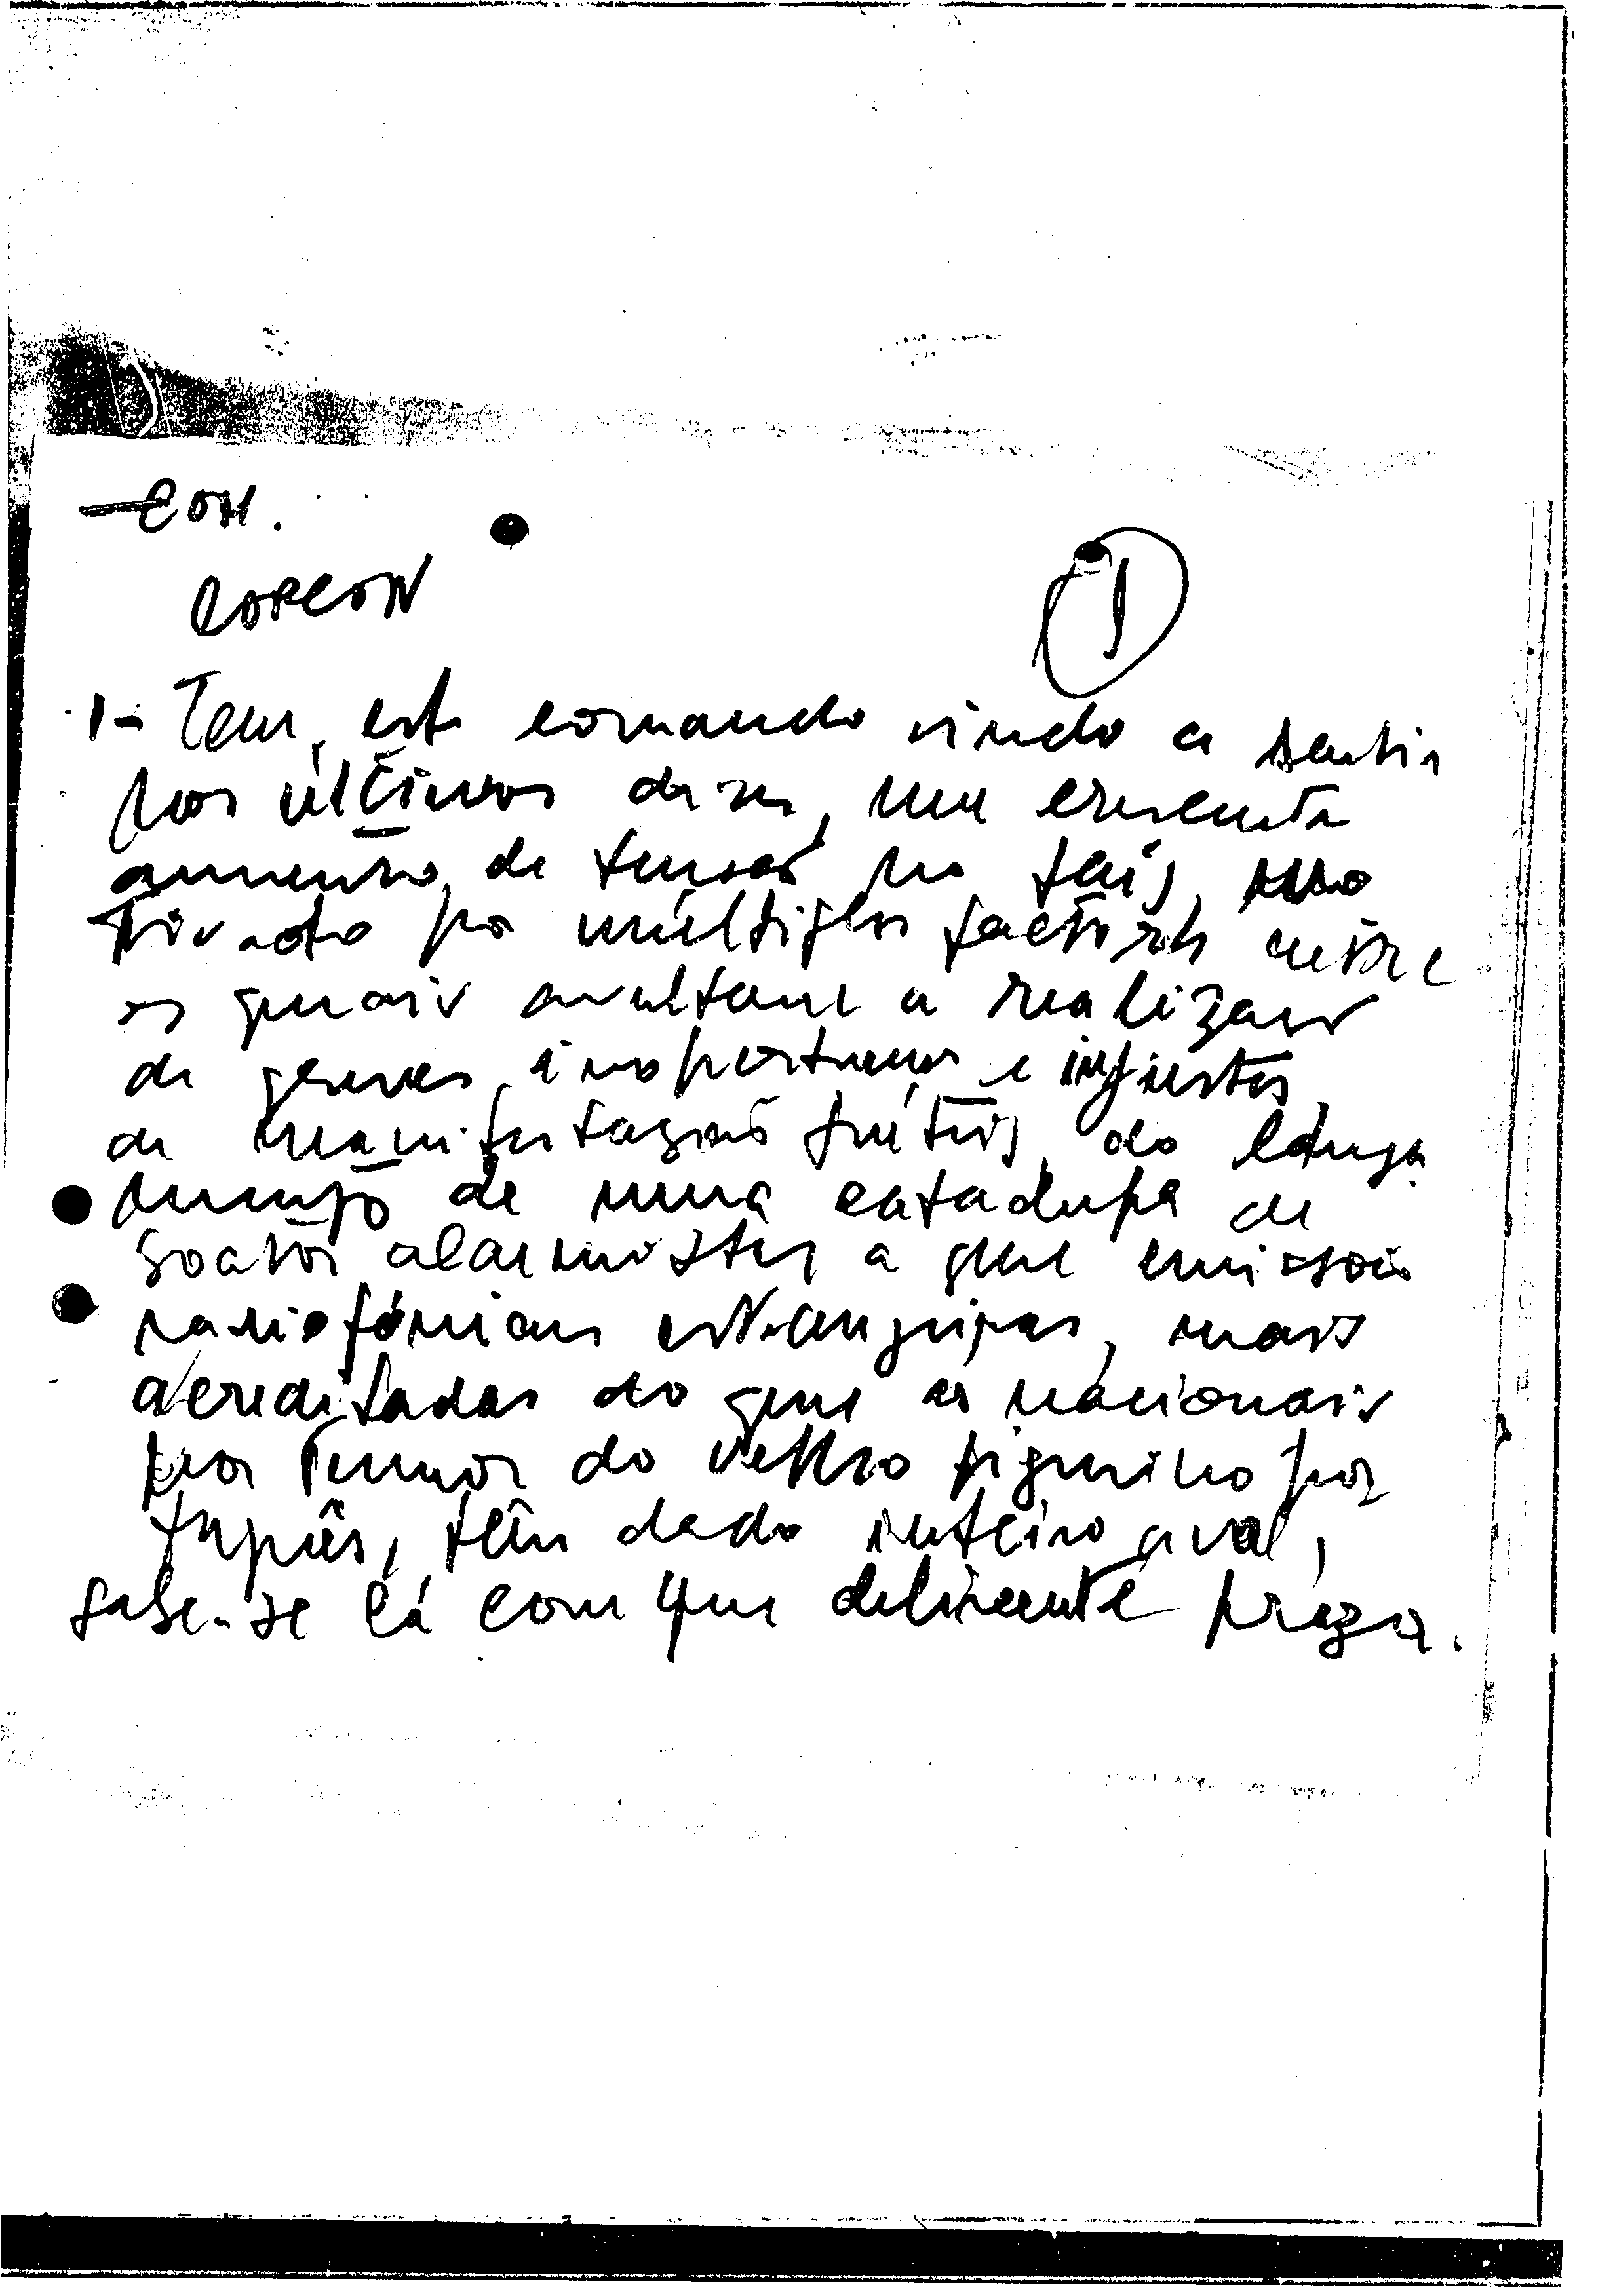 COM.
COPCON
1
1- Tem, este comando vindo a sentir
nos últimos dias, um crescente
aumento, de tensão no país, mo
tivado por múltiplos factores entre
os quais avultam a realização
de greves inoportunas e injustas,
de manifestações fúteis, do lança
mento de uma catadupa de
boatos alarmistas a que emissões
radiofónicas estrangeiras, mais
acreditadas do que as nacionais
por do velho figurino por
tuguês, têm dado inteiro aval,
sabe-se lá com que delirante